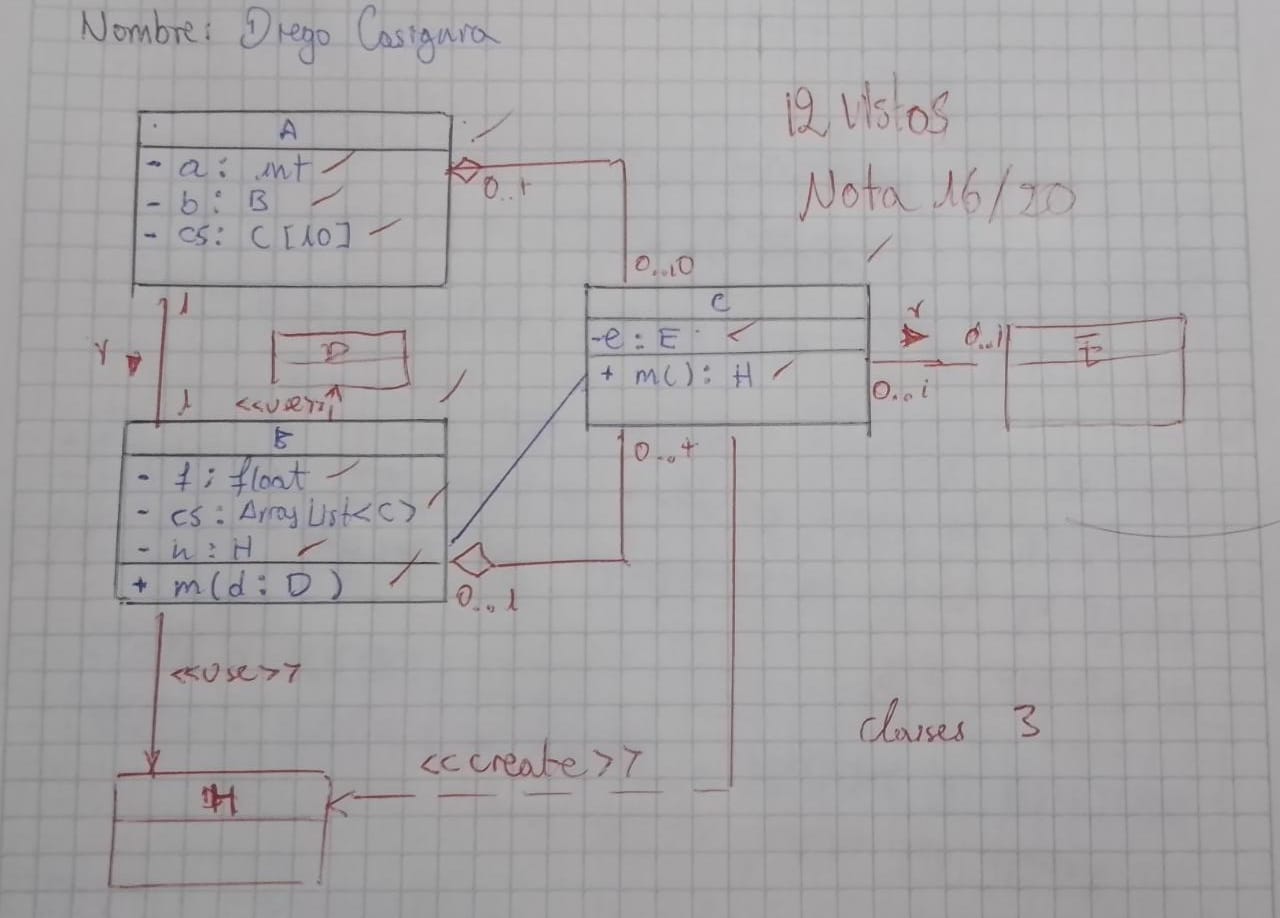 Nombre: Diego Casigura
12 Vistos
Nota 16/20
A
- a: int
- b: B
- cs: C [10]
0..1
0..10
C
- e: E
+ m(): H
r
0..1
E
0..1
1
r
D
1
<<use>>
B
- f: float
- cs: ArrayList<C>
- h: H
+ m(d: D)
0..*
0..1
<<use>>
clases 3
<<create>>
H